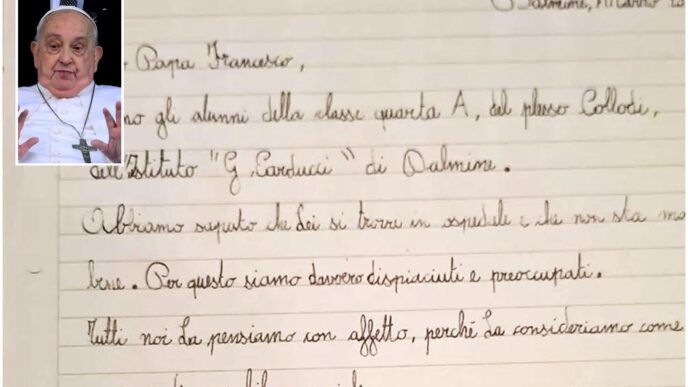 Dalmine, Marzo
Papa Francesco,
gli alunni della classe quarta A, del plesso Collodi,
dell'Istituto "G. Carducci" di Dalmine.
Abbiamo saputo che Lei si trova in ospedale e che non sta mo
bene. Per questo siamo davvero dispiaciuti e preoccupati.
Tutti noi La pensiamo con affetto, perché La consideriamo come